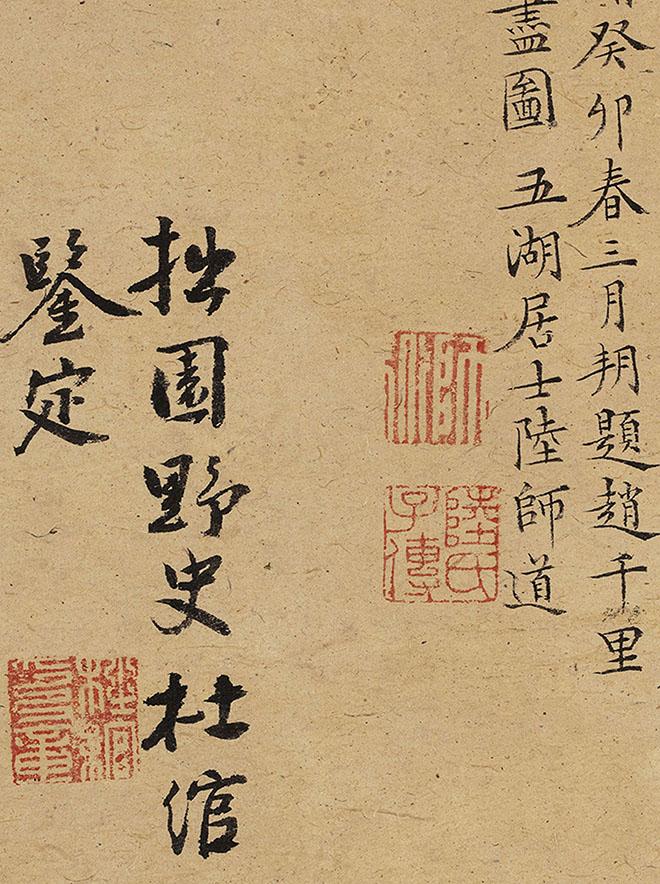 癸卯春三月朔題趙千里
盡圖 五湖居士陸師道
陸氏
子傳
拙園野史杜綰
鑒定